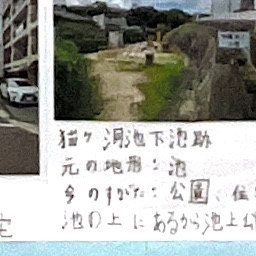 猫ヶ洞池下池跡
元の地形：池
今のすがた：公園、住
池の上にあるから池上公
宅